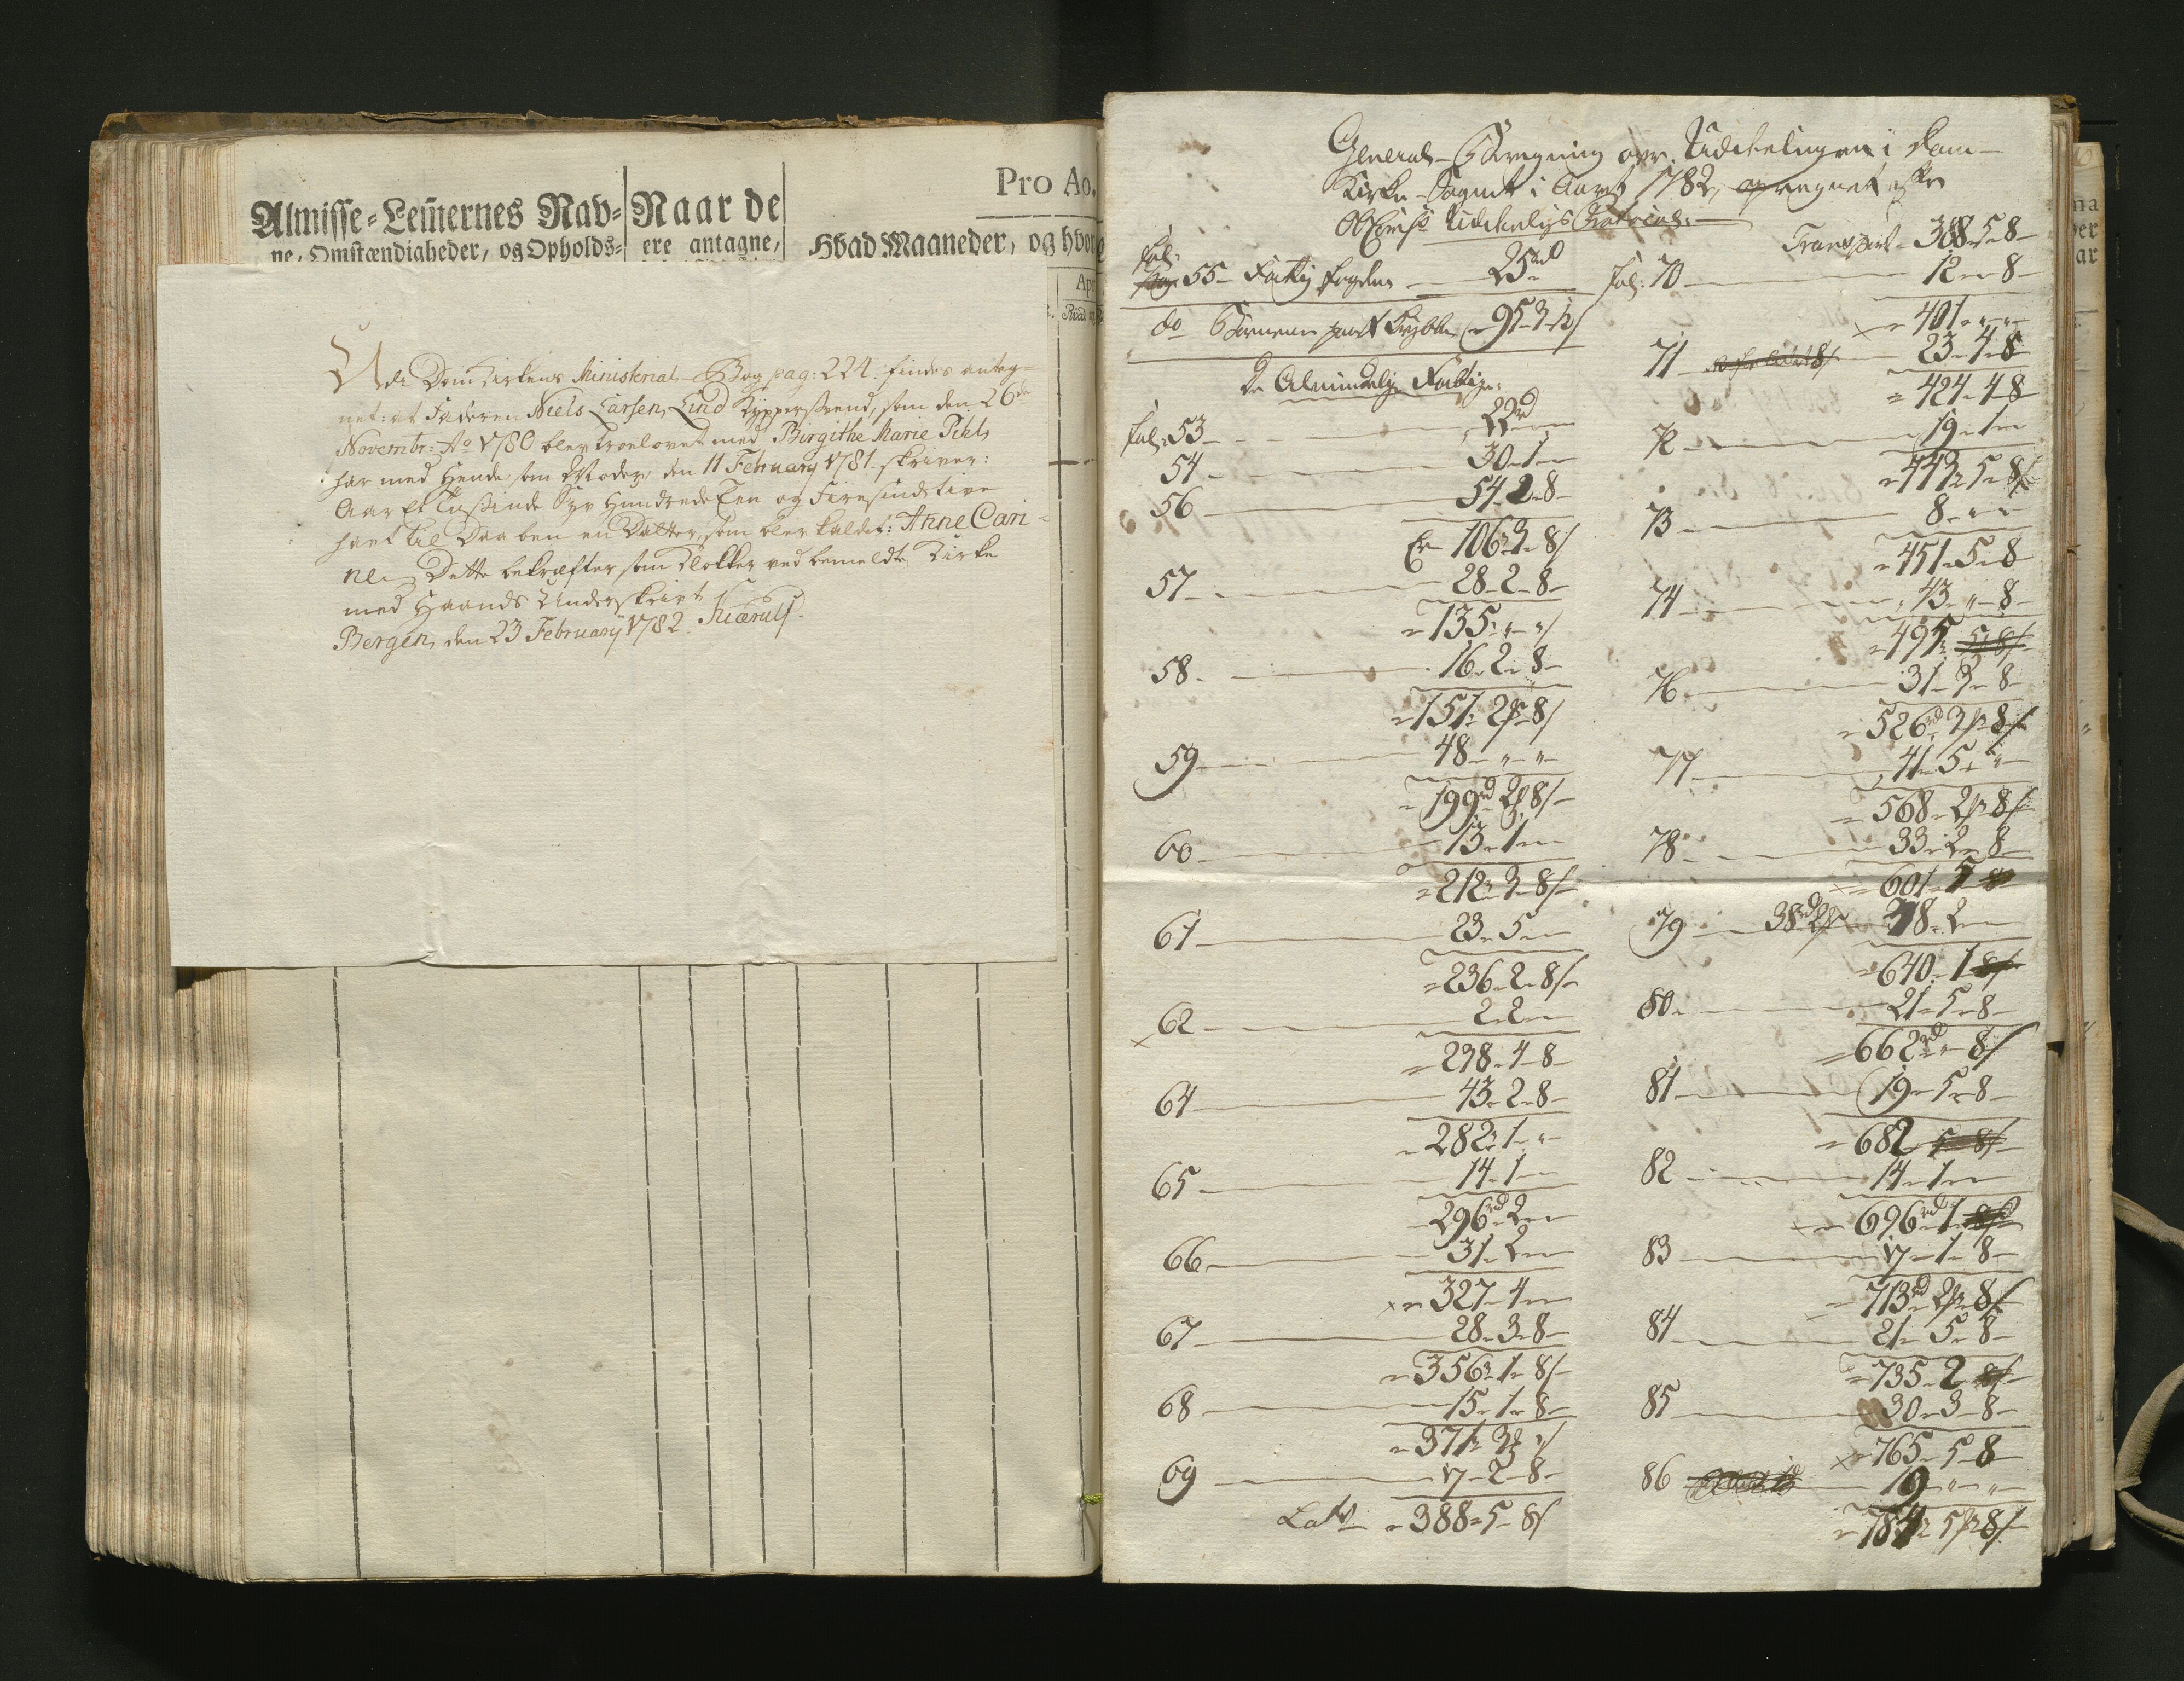 Pro Ao.
Almisse-Lem̃ernes Nav-
ne, Omstændigheder, og Opholds-
Naar de
ere antagne,
Hvad Maaneder, og hvor
Apr
Udi Dom Kirkens Ministerial-Bog pag: 224. findes anteg-
net: at Faderen Niels Larsen Lind Kyppersvend, som den 26de
Novembr: Ao 1780 blev troelovet med Birgithe Marie Pihl,
har med Hende som Moder, den 11 February 1781. skriver:
Aar Et Tusinde Syv Hundrede Een og Firesindstive
havt til Daaben en Datter, som blev kaldet: Anne Cari-
ne. Dette bekræfter som Klokker ved bemeldte Kirke
med Haands Underskrivt
Bergen, den 23 February 1782. Kierulf.
General-Beregning over Uddelingen i Dom-
Kirke-Sognet i Aaret 1782, opregnet efter
Uddelings
fol: 55 - Fattig fogden - 25rd
do Børnenes - 95-3-12
De Almindelige Fattige:
fol: 53 - 22
54 - 30-1-
56 - 54-2-8-
Er 106-3-8
57 - 28-2-8-
135-"-"
58 - 16-2-8-
151-2-8
59 - 48-"-"-
199rd 2-8
60 - 13-1-
212-3-8
61 - 23-5-
236-2-8
62 - 2-2-
238-4-8
64 - 43-2-8-
282-1-"-
65 - 14-1-
296rd-2-
66 - 31-2-
327-4-
67 - 28-3-8-
356-1-8
68 - 15-1-8-
371-3-"
69 - 17-2-8-
Lat - 388-5-8
Transport - 388-5-8-
fol: 70 - 12-"-8-
401-"-"-
71 - 23-4-8
424-4-8
72 - 19-1-
443-5-8
73 - 8-"-"
451-5-8
74 - 43-"-8-
495
76 - 31-3-8-
526rd-3-8
77 - 41-5-"-
568-2-8
78 - 33-2-8-
601-5
79 - 38rd2 38-2-
640-1
80 - 21-5-8-
662rd-"-8
81 - 19-5-8-
682
82 - 14-1-
696rd-1
83 - 17-1-8-
713rd-2-8
84 - 21-5-8-
735-2
85 - 30-3-8-
765-5-8
86 - 19-"-"-
784-5-8